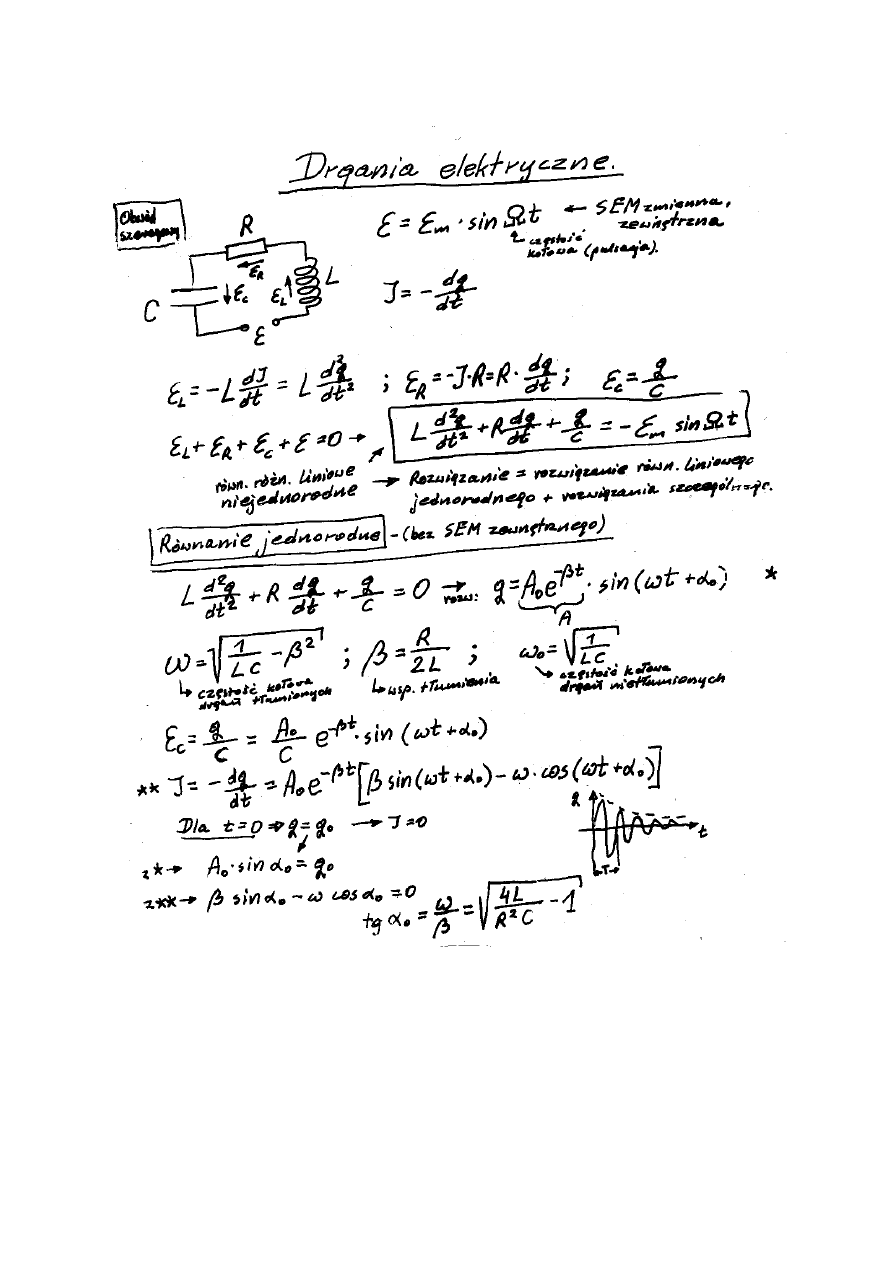 Drgania elektryczne.
Obwód
szeregowy
R
ε_R
C
ε_C
ε_L
L
ε
ε = ε_m · sin Ωt ← SEM zmienna,
zewnętrzna
częstość
kołowa (pulsacja).
J = - dq/dt
ε_L = -L dJ/dt = L d²q/dt² ; ε_R = -J·R = R · dq/dt ; ε_C = q/C
ε_L + ε_R + ε_C + ε = 0 → L d²q/dt² + R dq/dt + q/C = - ε_m sin Ωt
równ. różn. liniowe
niejednorodne
→ Rozwiązanie = rozwiązanie równ. liniowego
jednorodnego + rozwiązania szczególnego.
Równanie jednorodne - (bez SEM zewnętrznego)
L d²q/dt² + R dq/dt + q/C = 0 → rozw: q = A₀e^(-βt) · sin(ωt + α₀) *
A
ω = √(1/LC - β²) ; β = R/2L ; ω₀ = √(1/LC)
↳ częstość kołowa
drgań tłumionych
↳ wsp. tłumienia
↳ częstość kołowa
drgań nietłumionych
ε_C = q/C = A₀/C e^(-βt) · sin(ωt + α₀)
** J = - dq/dt = A₀e^(-βt) [β sin(ωt + α₀) - ω · cos(ωt + α₀)]
Dla t = 0 ⇒ q = q₀ → J = 0
q
t
T
z * → A₀ · sin α₀ = q₀
z ** → β sin α₀ - ω cos α₀ = 0
tg α₀ = ω/β = √(4L/R²C - 1)